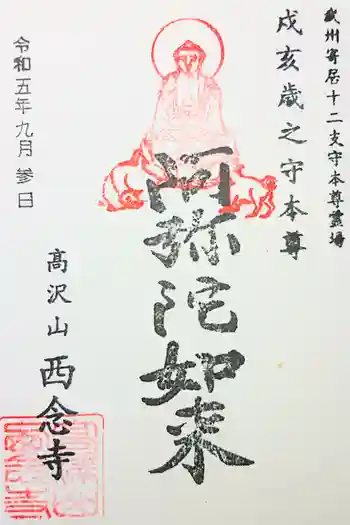 武州寄居十二支守本尊霊場
戌亥歳之守本尊
阿弥陀如来
令和五年九月参日
高沢山 西念寺